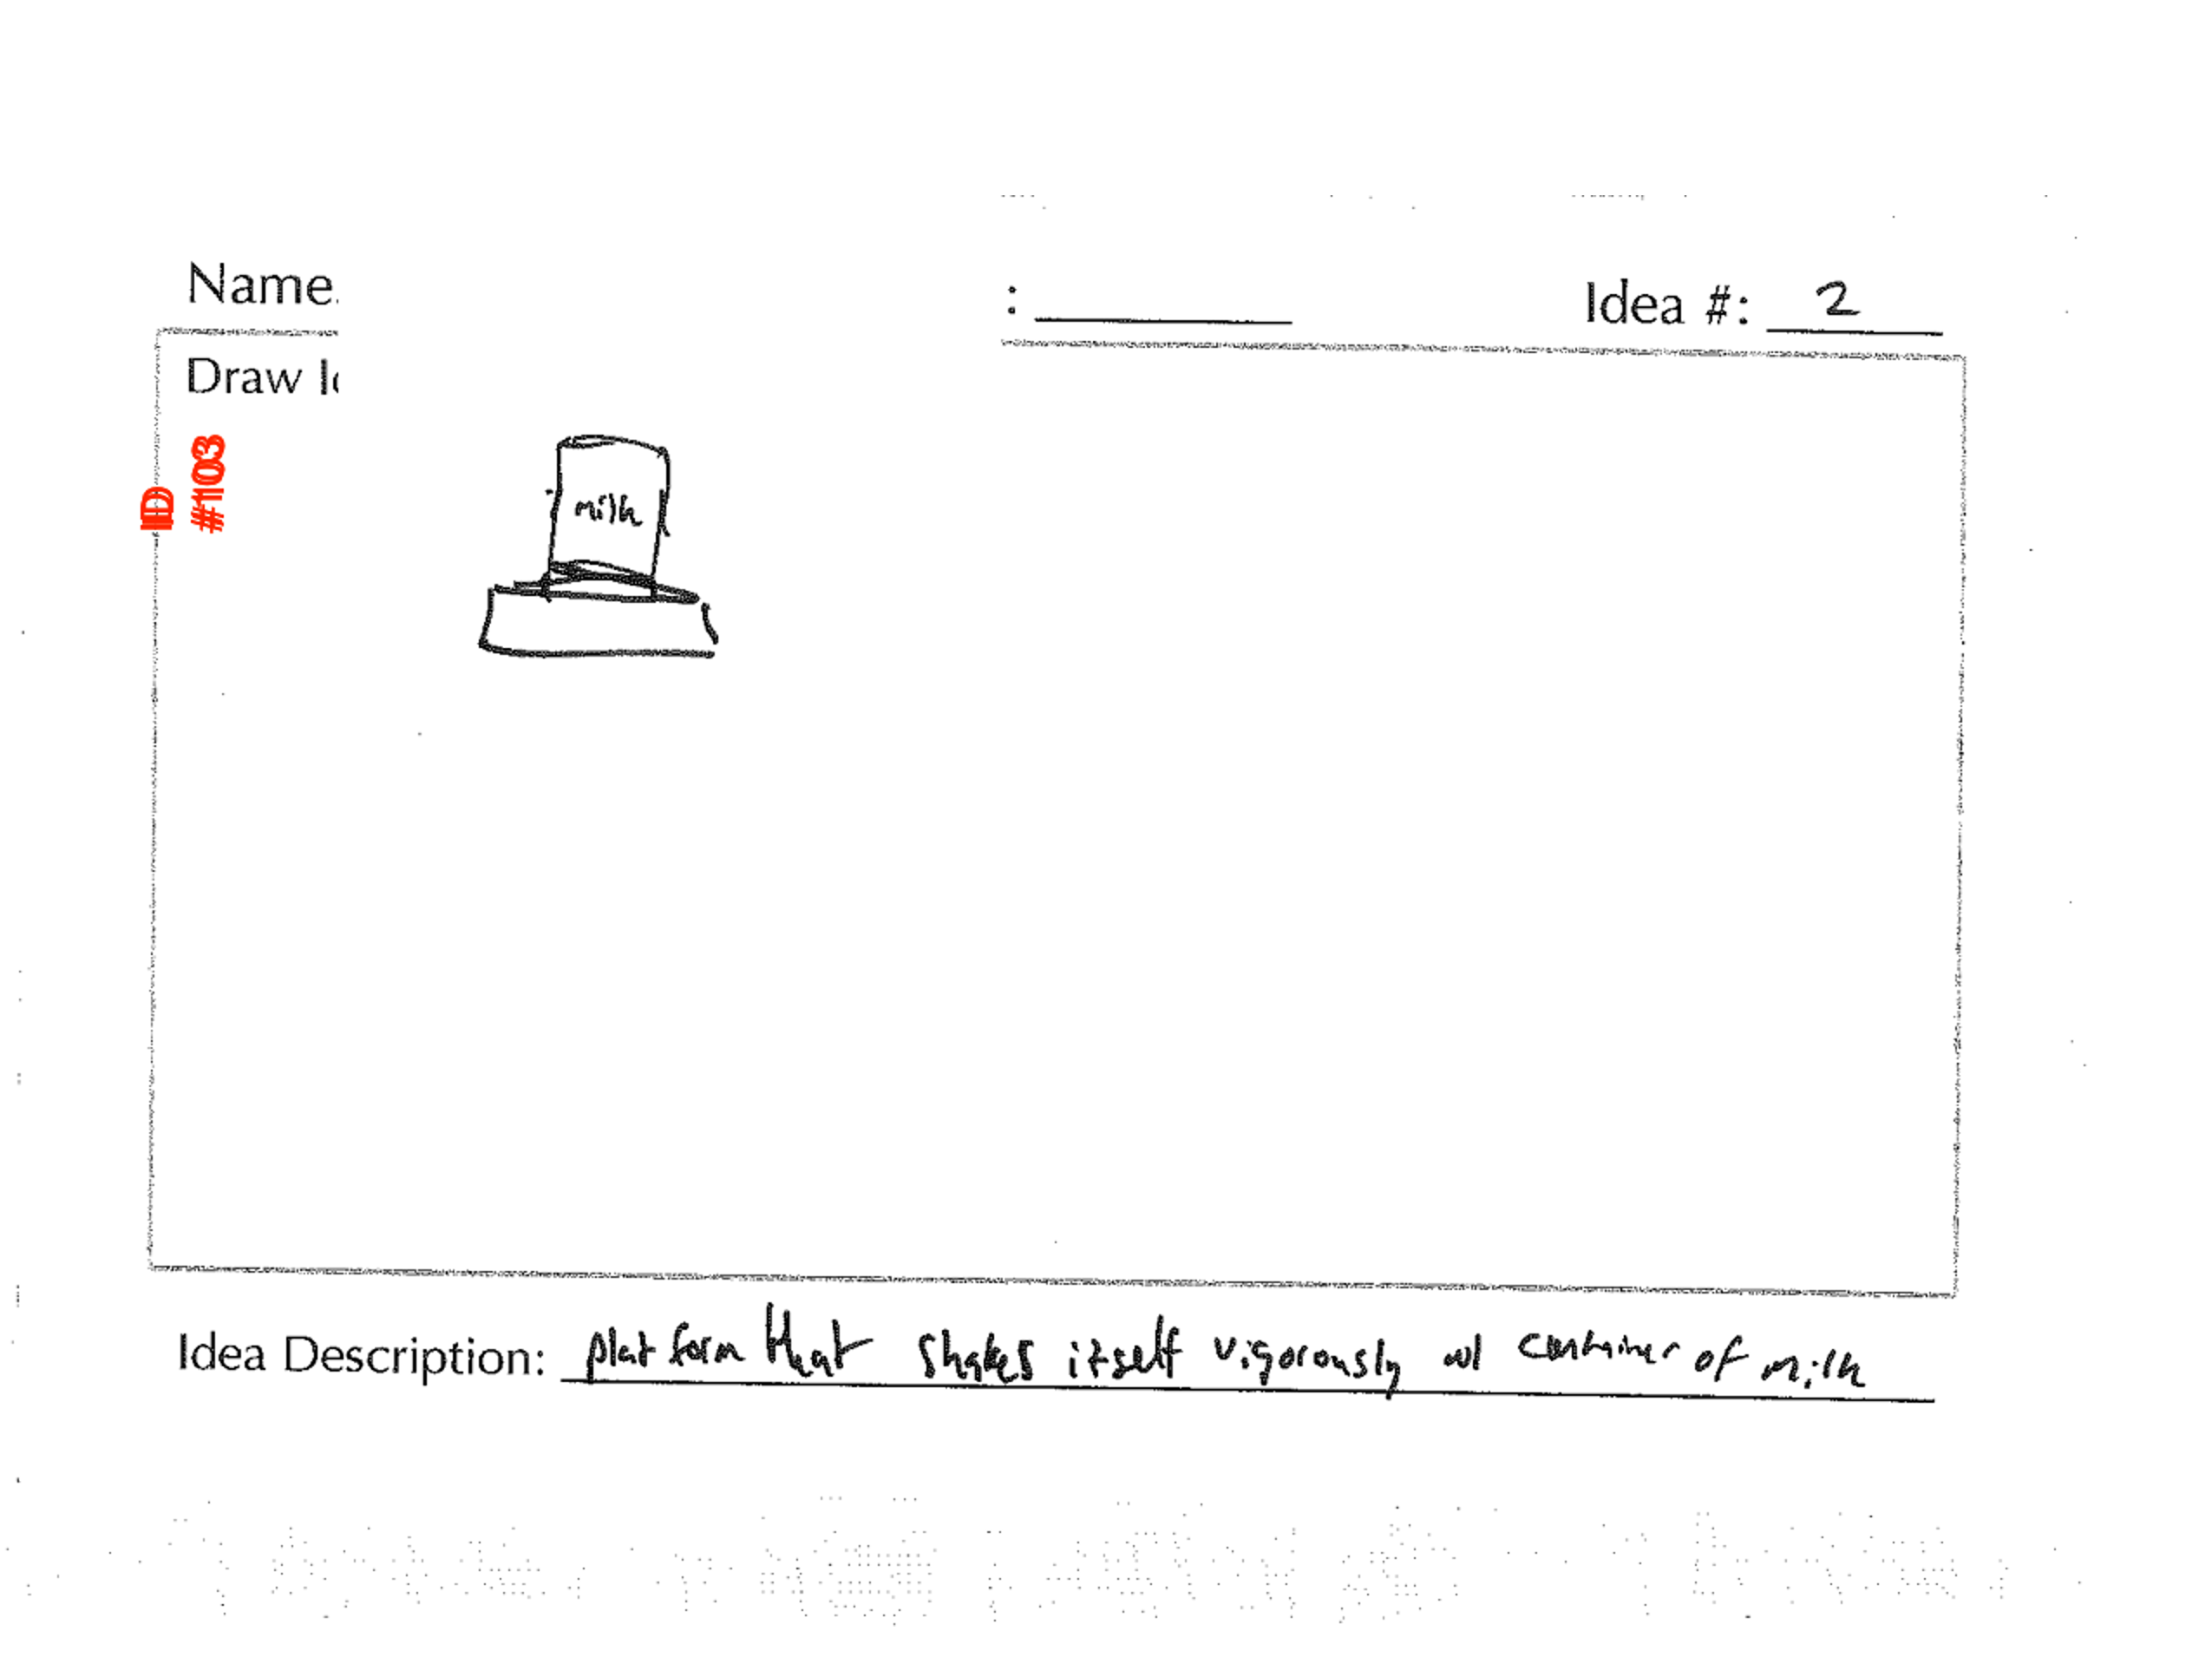 Name
: Idea #: 2
Draw Id
ID
#1103
milk
Idea Description: platform that shakes itself vigorously w/ container of milk